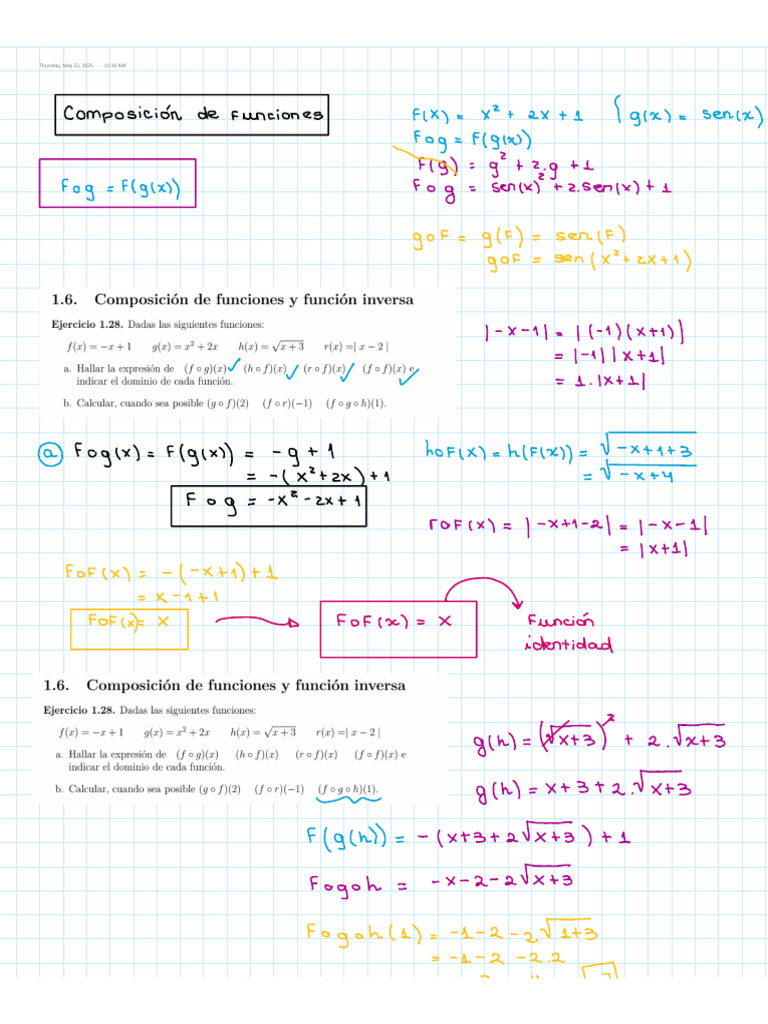 Thursday, May 22, 2025 11:10 AM
Composición de Funciones
Fog = F(g(x))
F(x) = x² + 2x + 1 { g(x) = sen(x)
Fog = F(g(x))
F(g) = g² + 2.g + 1
Fog = sen(x)² + 2.sen(x) + 1
goF = g(F) = sen(F)
goF = sen(x² + 2x + 1)
1.6. Composición de funciones y función inversa
Ejercicio 1.28. Dadas las siguientes funciones:
f(x) = −x + 1 g(x) = x² + 2x h(x) = √(x + 3) r(x) =| x − 2 |
a. Hallar la expresión de (f ∘ g)(x) (h ∘ f)(x) (r ∘ f)(x) (f ∘ f)(x) e
indicar el dominio de cada función.
b. Calcular, cuando sea posible (g ∘ f)(2) (f ∘ r)(−1) (f ∘ g ∘ h)(1).
|-x-1| = |(-1)(x+1)|
= |-1||x+1|
= 1.|x+1|
a Fog(x) = F(g(x)) = -g + 1
= -(x²+2x)+1
Fog = -x² -2x+1
hoF(x) = h(F(x)) = √(-x+1+3)
= √(-x+4)
roF(x) = |-x+1-2| = |-x-1|
= |x+1|
FoF(x) = -(-x+1)+1
= x-1+1
FoF(x)= x
FoF(x) = x
Función
identidad
1.6. Composición de funciones y función inversa
Ejercicio 1.28. Dadas las siguientes funciones:
f(x) = −x + 1 g(x) = x² + 2x h(x) = √(x + 3) r(x) =| x − 2 |
a. Hallar la expresión de (f ∘ g)(x) (h ∘ f)(x) (r ∘ f)(x) (f ∘ f)(x) e
indicar el dominio de cada función.
b. Calcular, cuando sea posible (g ∘ f)(2) (f ∘ r)(−1) (f ∘ g ∘ h)(1).
g(h) = (√(x+3))² + 2.√(x+3)
g(h) = x+3+2.√(x+3)
F(g(h)) = -(x+3+2√(x+3)) + 1
Fogoh = -x-2-2√(x+3)
Fogoh(1) = -1-2-2√(1+3)
= -1-2-2.2